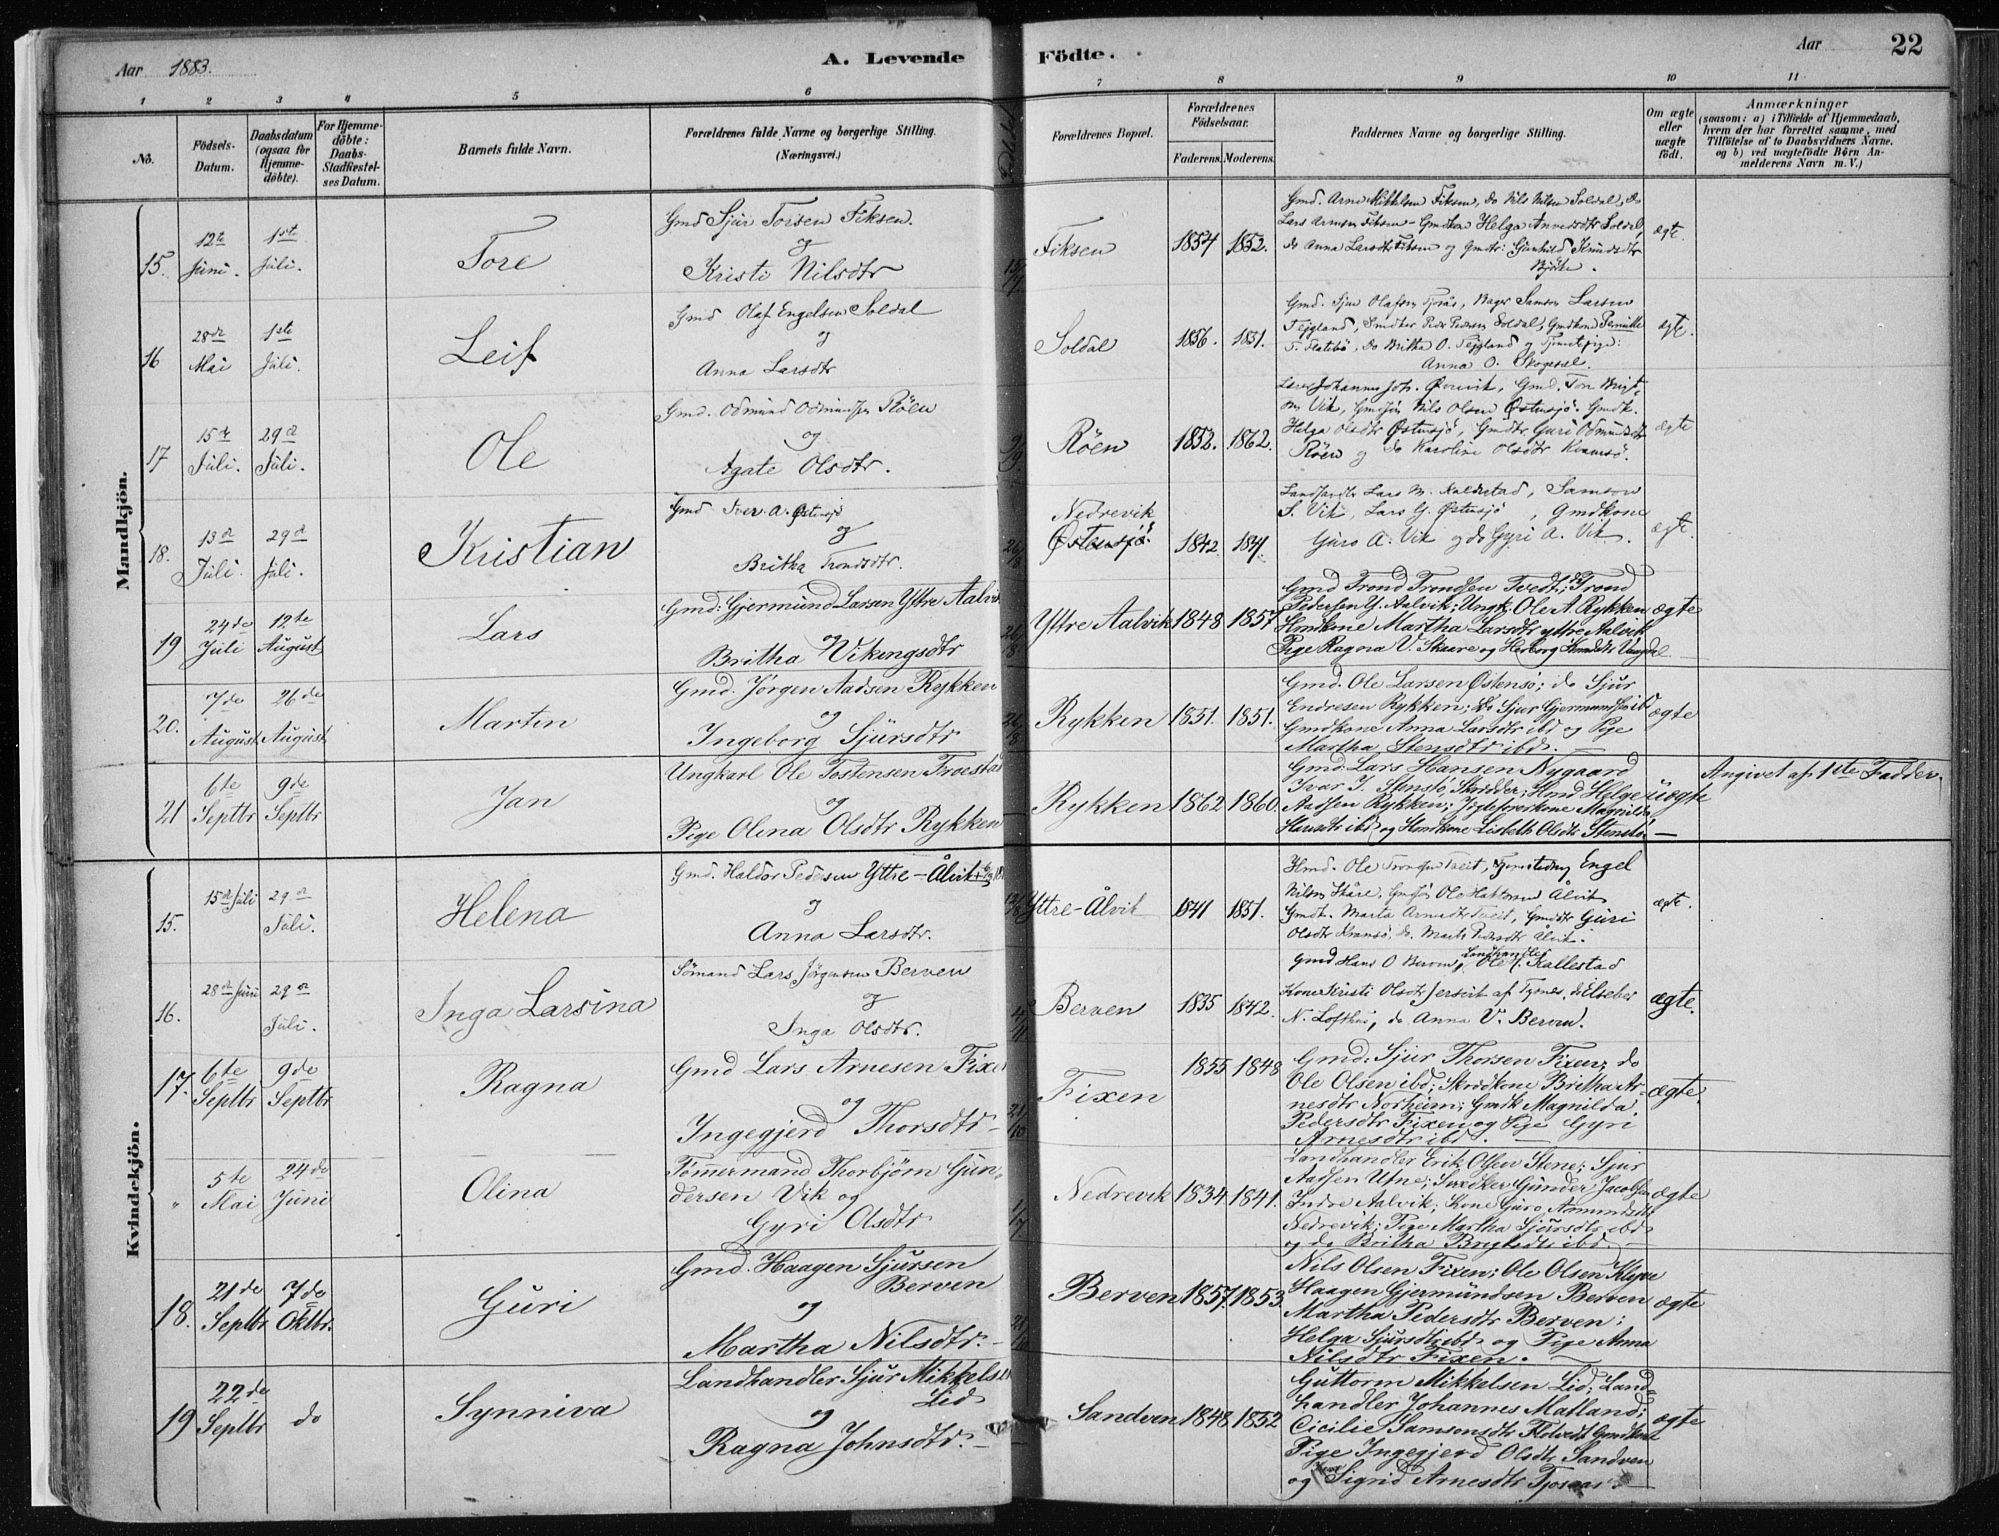 Aar 1883.
A. Levende
Födte.
Aar
22
1 2 3 4 5 6 7 8 9 10 11
No.
Födsels-Datum.
Daabsdatum (ogsaa for Hjemme-döbte).
For Hjemme-döbte: Daabs-Stadfæstel-ses Datum.
Barnets fulde Navn.
Forældrenes fulde Navne og borgerlige Stilling. (Næringsvei.)
Forældrenes Bopæl.
Forældrenes Födselsaar.
Faderens. Moderens.
Faddernes Navne og borgerlige Stilling.
Om ægte eller uægte födt.
Anmærkninger (saasom: a) i Tilfælde af Hjemmedaab, hvem der har forrettet samme, med Tilföielse af to Daabsvidners Navne, og b) ved uægtefödte Börn An-melderens Navn m. V.)
Mandkjön.
15. 12te Juni. 1ste Juli. Tore
Gmd Sjur Torsen Fiksen.
og
Kristi Nilsdtr
Fiksen 1854 1852.
Gmd. Arne Mikkelsen Fiksen, do Nils Nilsen Soldal, do
Lars Arnesen Fiksen - Gmdkone Helga Soldal,
do Anna Larsdtr Fiksen og Gmdtr: Gunhild Knudsdtr
ægte.
16 28de Mai 1ste Juli. Leif
Gmd Olaf Engelsen Soldal
og
Anna Larsdtr
Soldal 1856. 1851.
Gmd. Sjur Olafsen Tjosås, Bager Samson Larsen
Fejgland, Peder Pedersen Soldal, Gmdkone Pernille
T. Flatebö, do Britha O. Fejgland og Tjenestepige:
Anna O. Skogesal.
ægte.
17 15de Juli. 29de Juli. Ole
Gmd. Odmund Odmundsen Röen
og
Agate Olsdtr.
9/9
Röen 1852. 1862.
Johannes Joh. Övrevik, Gmd. Tor
Vik, Nils Olsen Östensjö. Gmdk.
Helga Olsdtr Östensjö, Gmdtr Guri Odmundsdtr
Röen og do Karoline Olsdtr Kvamsö.
ægte
18. 13de Juli. 29de Juli. Kristian
Gmd Iver A. Östensjö
og
Britha Trondsdtr.
26/8
Nedrevik
Östensjö. 1842
Lars M. Samson
S. Vik, Lars G. Östensjö, Gmdkone
Guro A. Vik og do Gyri A. Vik.
ægte.
19 24de Juli 12te August Lars
Gmd: Gjermund Larsen Yttre Aalvik
og
Britha Vikingsdtr
26/8
Yttre Aalvik 1848 1857
Gmd Trond Trondsen Tvedt; do Trond
Pedersen Y. Aalvik; Ungk. Ole A. Rykken
Hmdkone Martha Larsdtr yttre Aalvik
Pige Ragna V. Skaare og Herborg
ægte
20. 7de August 26de August Martin
Gmd. Jörgen Aadsen Rykken
og
Ingeborg Sjursdtr
26/8
Rykken 1851. 1851.
Gmd. Ole Larsen Östensö; do Sjur
Endresen Rykken; do Sjur Gjermundsen ibd
Gmdkone Anna Larsdtr ibd og Pige
Martha Stensdtr ibd.
ægte
21 6te Septbr 9de Septbr Jan
Ungkarl Ole Tostensen Froestad
og
Pige Olena Olsdtr Rykken
Rykken 1862 1860.
Gmd: Lars Hansen Nygaard
Ivar J. Stenstö, Skrædder; Hmd. Helge
Aadsen Rykken; Magnilda
Hansdtr ibd og Hmdkone Lisbeth Olsdtr Stenstö
uægte
Angivet af 1ste Fadder.
Kvindekjön.
15. 15de Juli 29de Juli. Helena
Gmd. Haldor Pedersen Yttre-Ålvik
og
Anna Larsdtr.
Yttre-Ålvik 1841 1851.
Hmd. Ole Tveit, Engel
Nilsen Skåre, Ole Ålvik
Gmdt. Marta Arnesdtr Tveit, Gmdtr Guri
Olsdtr Kvamsö, do. Marta Pedersdtr Ålvik.
ægte.
16. 28de Juni 29de Juli. Inga Larsina
Sömand Lars Jörgensen Berven
og
Inga Olsdtr.
4/11
Berven 1835 1842.
Gmd Hans O Berven, Landhandler Ole J. Kallestad
Kone Kristi Olsdtr af Tysnes, do Elseber
N. Lofthus, do Anna V. Berven.
ægte.
17. 6te Septbr 9de Septbr Ragna
Gmd Lars Arnesen Fixen
og
Ingegjerd Thorsdtr
21/10
Fixen 1855 1848
Gmd: Sjur Thorsen Fixen; do
Ole Olsen ibd; Skrædkone Britha Ar-
nesdtr Norheim; Gmdk Magnilda
Pedersdtr Fixen og Pige Gyri
Arnesdtr ibd.
ægte.
" 5te Mai 24de Juni Olina
Tömmermand Thorbjörn Gun-
dersen Vik og
Gyri Olsdtr
1/7
Nedrevik 1834 1841.
Landhandler Erik Olsen Stene; Sjur
Aadsen Utne; Snedker Gunder Jacobsen
Indre Aalvik; Kone Guro Amundsdtr
Nedrevik; Pige Martha Sjursdtr ibd
og do Britha ibd.
ægte
18. 21de Septbr 7de Oktbr. Guri
Gmd. Haagen Sjursen
Berven
og
Martha Nilsdtr.
21/10
Berven 1857. 1853.
Nils Olsen Fixen; Ole Olsen Klyve
Haagen Gjermundsen Berven
Martha Pedersdtr Berven;
Helga Sjursdtr ibd og Pige Anna
Nilsdtr Fixen.
ægte
19 22de Septbr do Synniva
Landhandler Sjur Mikkelsen
Lid
og
Ragna Johnsdtr.
Sandven 1848 1852
Guttorm Mikkelsen Lid; Land-
handler Johannes Matland;
Cicilie Samsonsdtr Flotvedt Gmdkone
Pige Ingegjerd Olsdtr Sandven
og Sigrid Arnesdtr Tjosaas
ægte